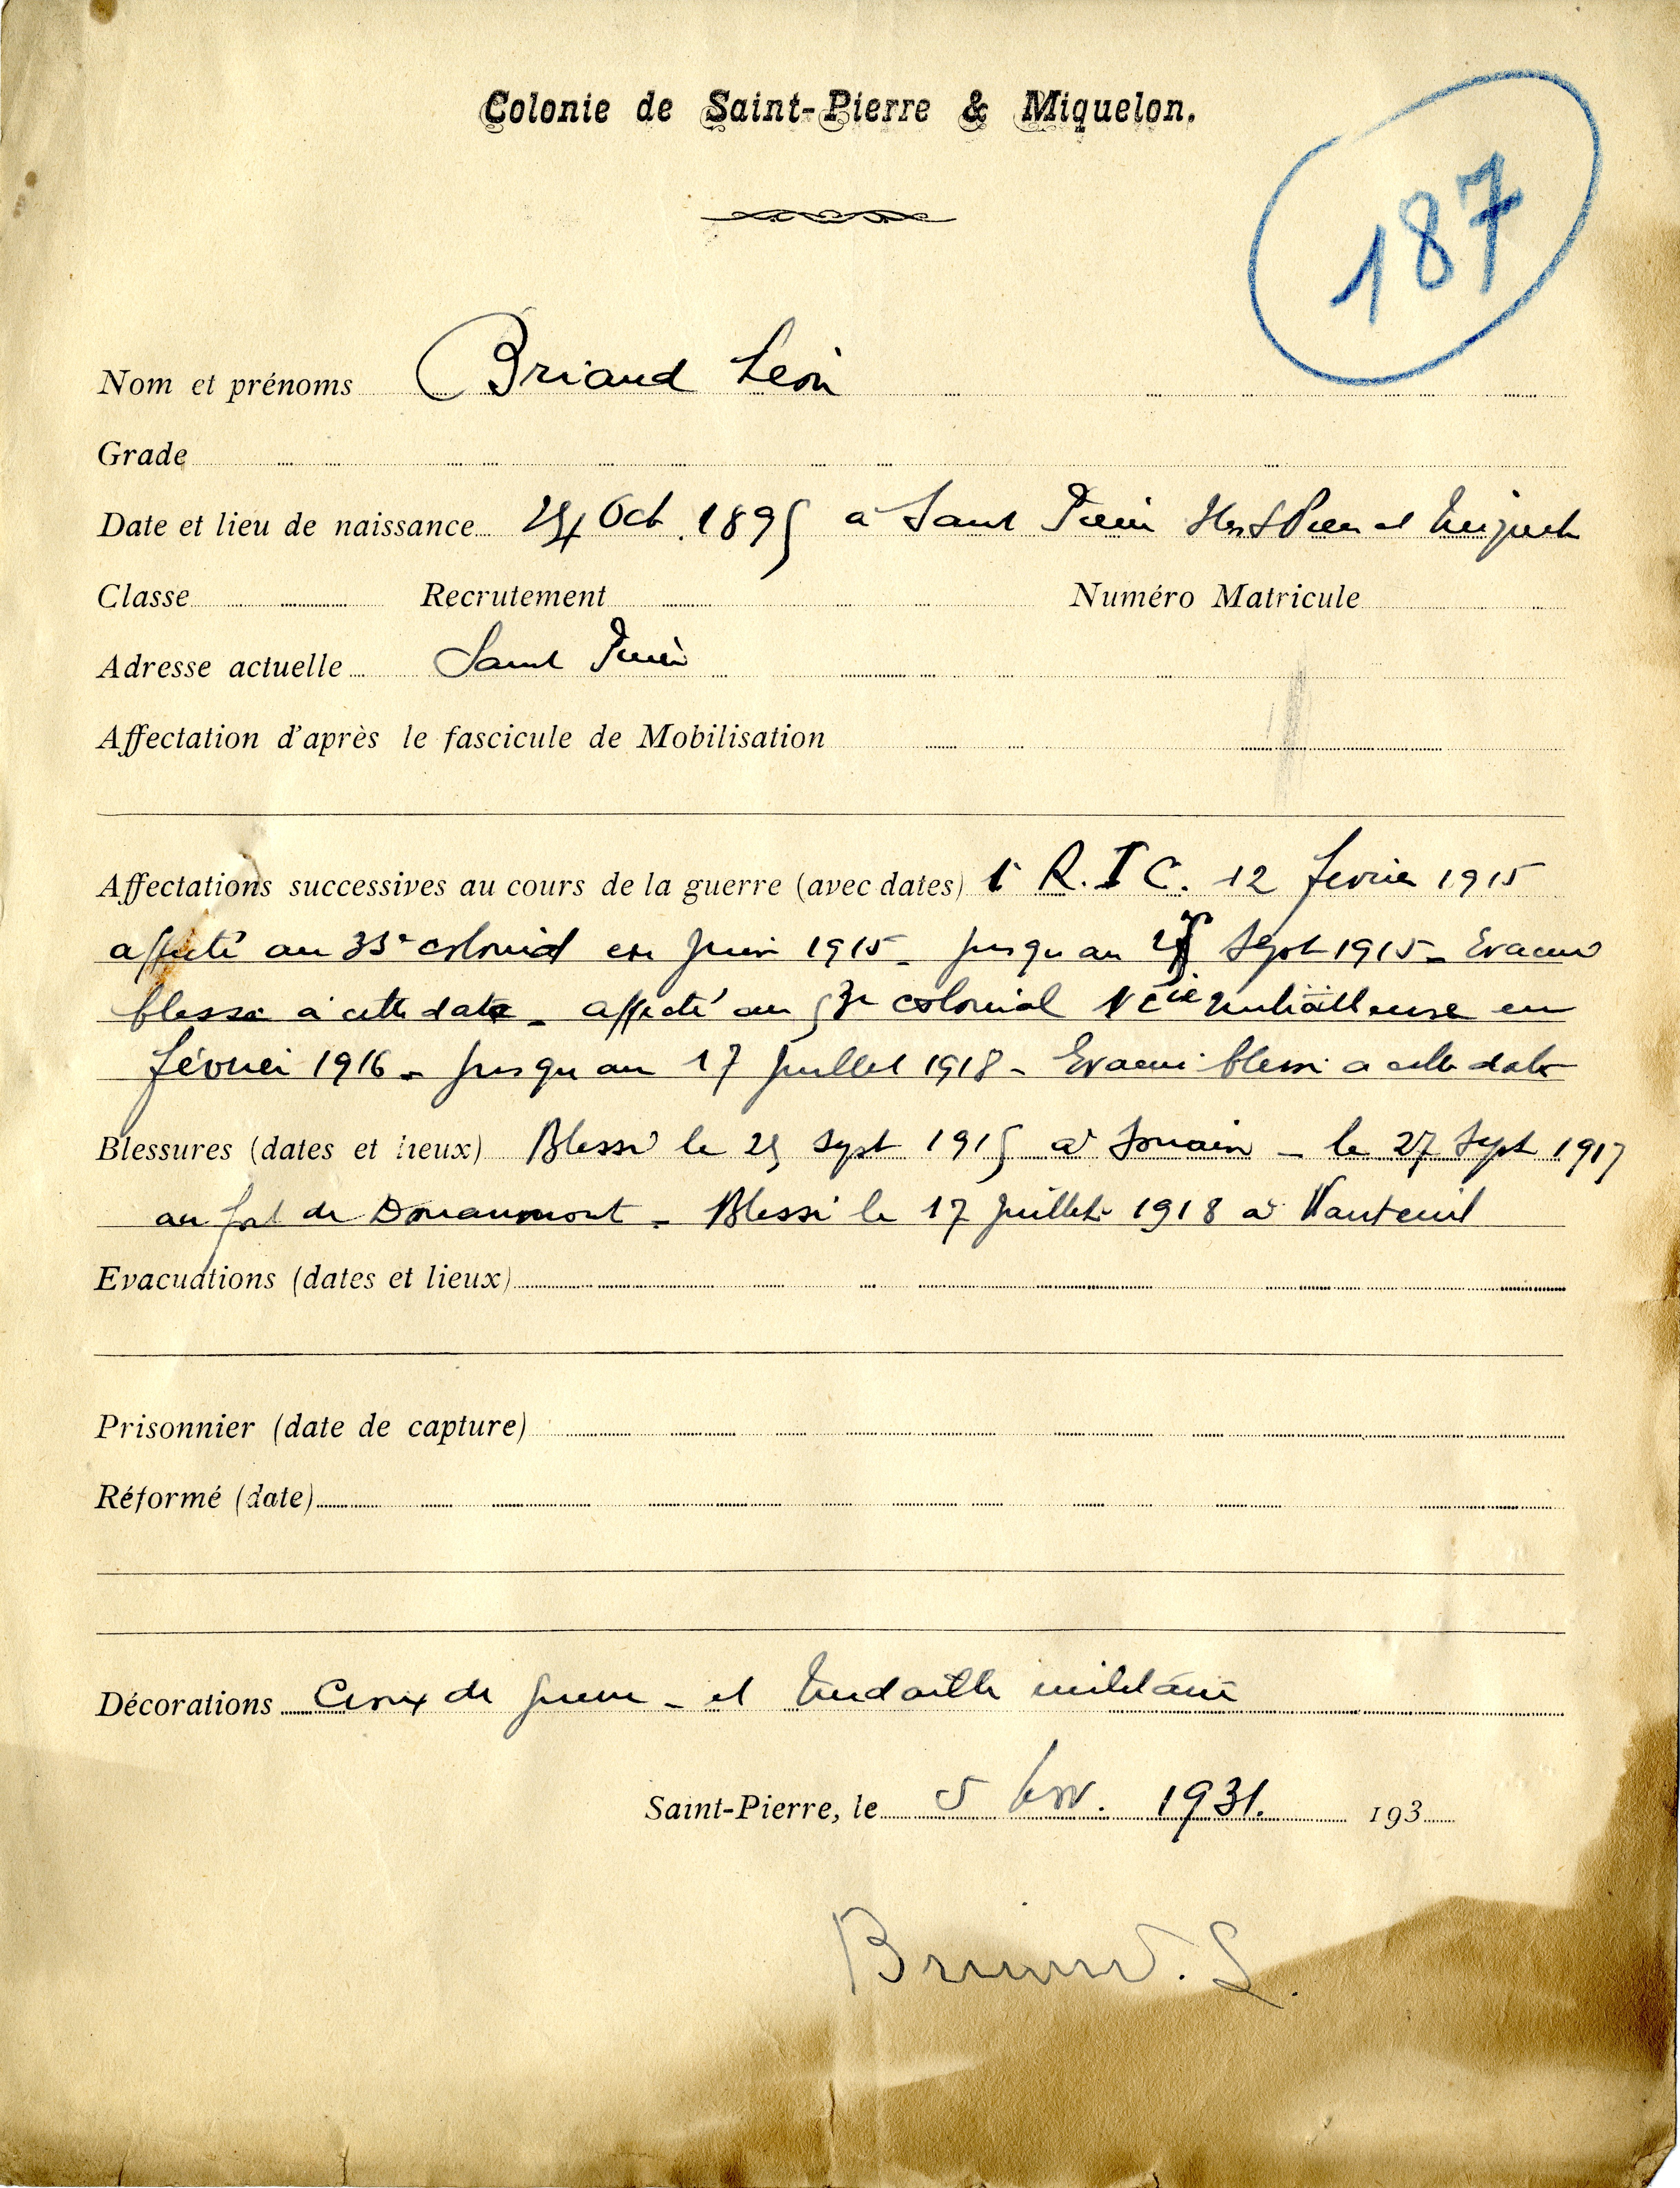 Colonie de Saint-Pierre & Miquelon.
187
Nom et prénoms Briand Léon
Grade
Date et lieu de naissance 24 Oct. 1895 à Saint Pierre Iles St Pierre et Miquelon
Classe Recrutement Numéro Matricule
Adresse actuelle Saint Pierre
Affectation d'après le fascicule de Mobilisation
Affectations successives au cours de la guerre (avec dates) 1r R.I C. 12 fevrier 1915
affecté au 33e colonial en Juin 1915 - jusqu au 25 Sept 1915 - Evacué
blessé à cette date - affecté au colonial Cie mitrailleuse en
février 1916 - jusqu au 17 juillet 1918 - Evacué blessé a cette date
Blessures (dates et lieux) Blessé le 25 sept 1915 à Souain - le 27 Sept 1917
au fort de Douaumont - Blessé le 17 juillet 1918 à Nanteuil
Evacuations (dates et lieux)
Prisonnier (date de capture)
Réformé (date)
Décorations Croix de guerre - et Médaille militaire
Saint-Pierre, le 5 Nov. 1931. 193
Briand. L.